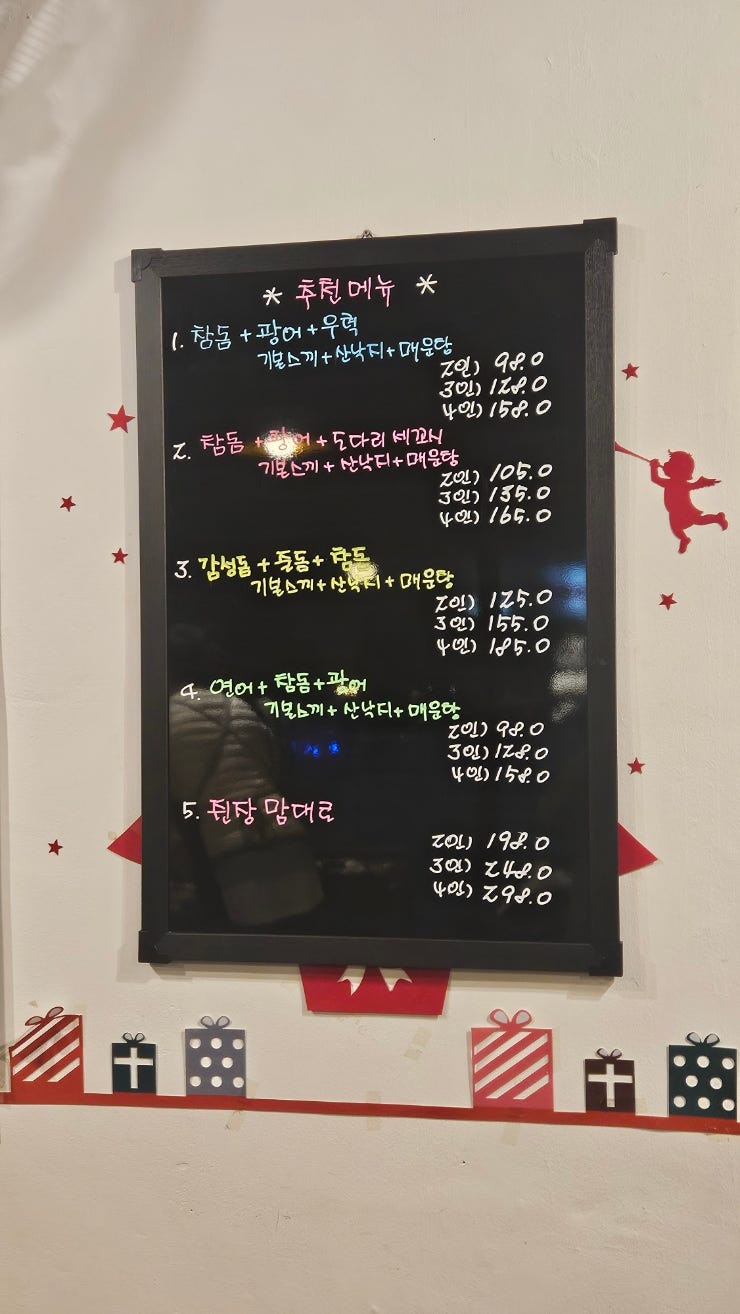 * 추천메뉴 *
1. 참돔 + 광어 + 우럭
기본스끼 + 산낙지 + 매운탕
2인) 98.0
3인) 128.0
4인) 158.0
2. 참돔 + 광어 + 도다리세꼬시
기본스끼 + 산낙지 + 매운탕
2인) 105.0
3인) 135.0
4인) 165.0
3. 감성돔 + 줄돔 + 참돔
기본스끼 + 산낙지 + 매운탕
2인) 125.0
3인) 155.0
4인) 185.0
4. 연어 + 참돔 + 광어
기본스끼 + 산낙지 + 매운탕
2인) 98.0
3인) 128.0
4인) 158.0
5. 쥔장 맘대로
2인) 198.0
3인) 248.0
4인) 298.0